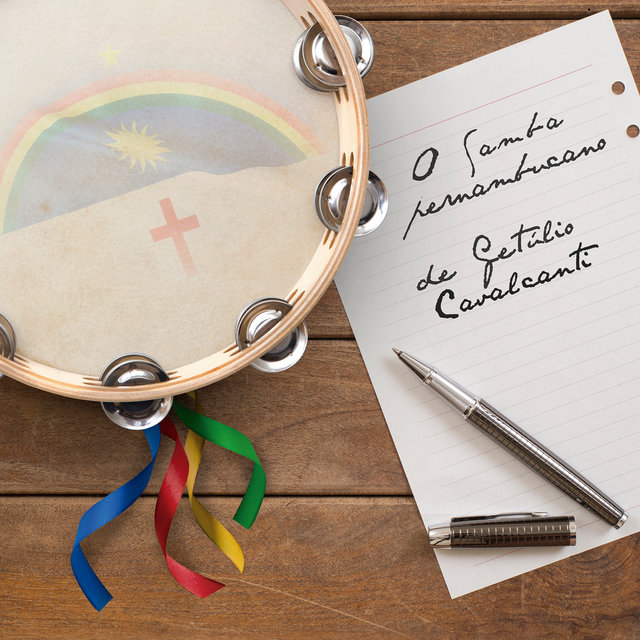 O Samba
pernambucano
de Getúlio
Cavalcanti